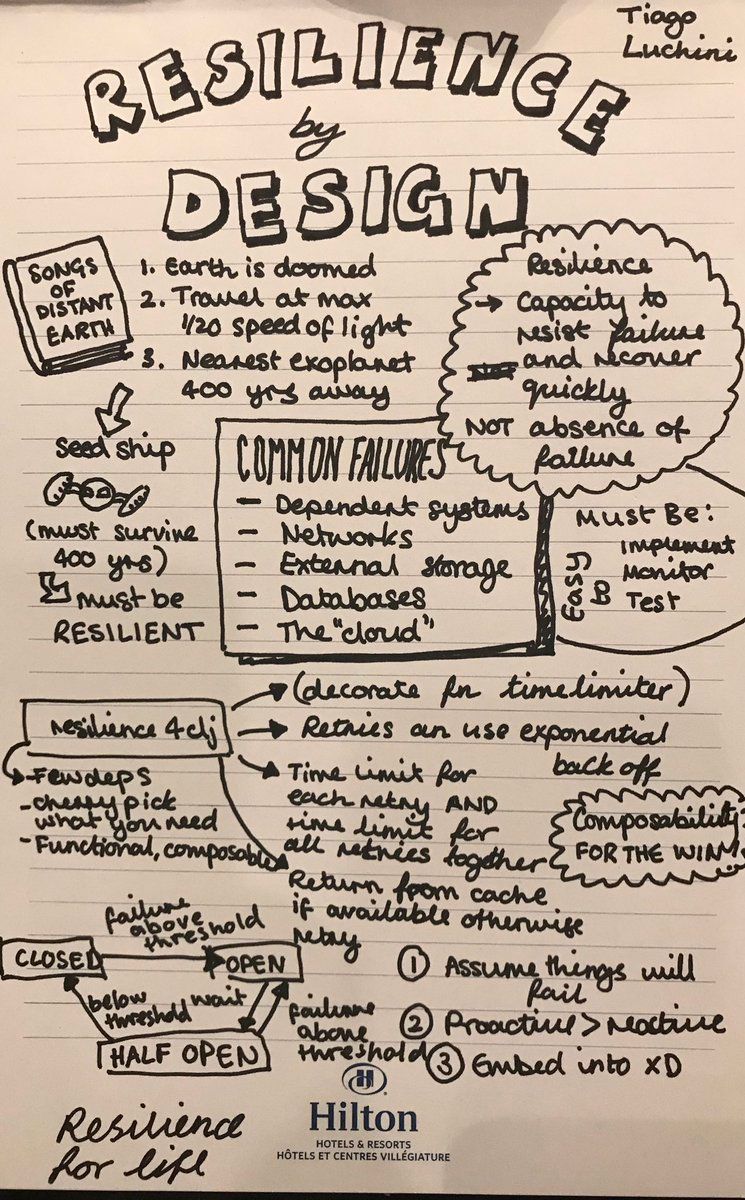 Tiago
Luchini
RESILIENCE
by
DESIGN
SONGS
OF
DISTANT
EARTH
1. Earth is doomed
2. Travel at max
1/20 speed of light
3. Nearest exoplanet
400 yrs away
Resilience
→ Capacity to
resist failure
and recover
quickly
NOT absence of
failure
Seed ship
(must survive
400 yrs)
must be
RESILIENT
COMMON FAILURES
- Dependent systems
- Networks
- External storage
- Databases
- The "cloud"
MUST BE:
Easy
Implement
Monitor
Test
resilience 4clj
→ (decorate fn timelimiter)
→ Retries an use exponential
back off
→ Time limit for
each retry AND
time limit for
all retries together
Return from cache
if available otherwise
retry
- Few deps
- cherry pick
what you need
- Functional, composable
Composability
FOR THE WIN
CLOSED
failure
above
threshold
OPEN
below
threshold
wait
failure
above
threshold
HALF OPEN
① Assume things will
fail
② Proactive > reactive
③ Embed into XD
Resilience
for life
H
Hilton
HOTELS & RESORTS
HÔTELS ET CENTRES VILLÉGIATURE